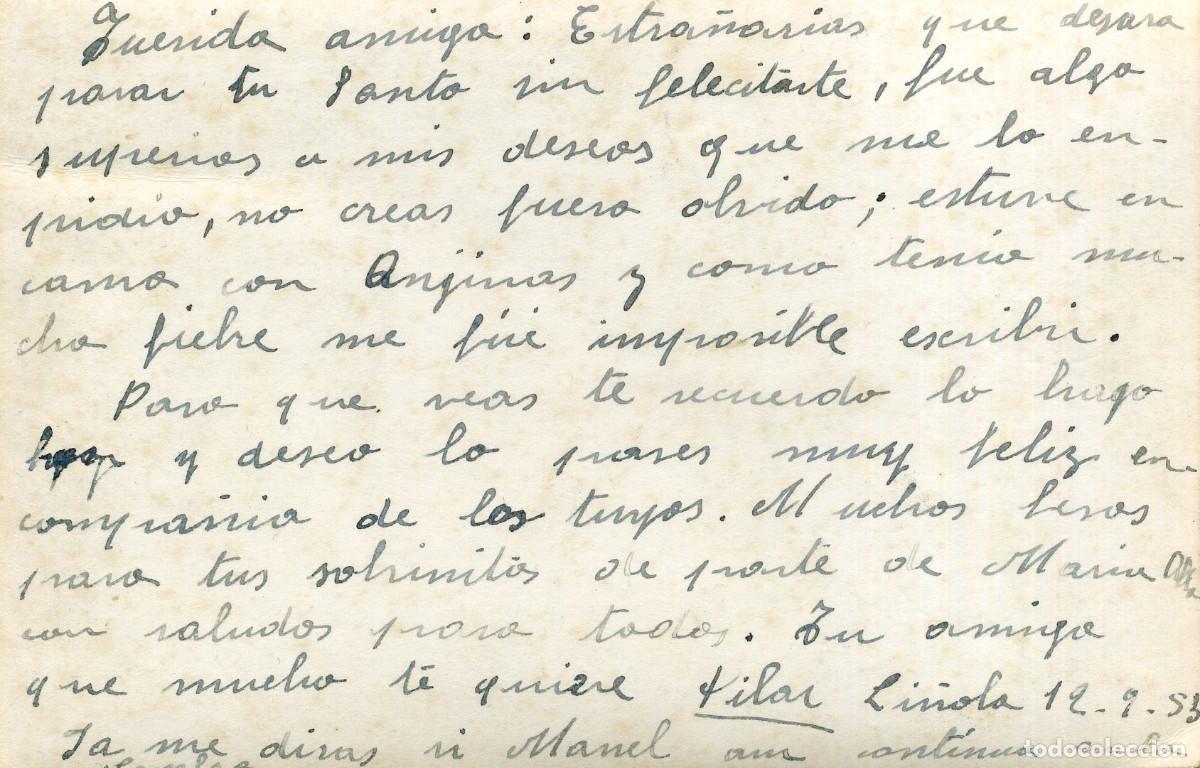 Querida amiga: Estrañarias que dejara
pasar tu Santo sin felecitarte, fue algo
superios a mis deseos que me lo en-
pidio, no creas fuera olvido; estuve en
cama con Anjinas y como tenia mu-
cha fiebre me fúe imposible escribir.
Para que veas te recuerdo lo hago
hoy y deseo lo pases muy feliz en
compañia de los tuyos. Muchos besos
para tus sobrinitos de parte de Maria
con saludos para todos. Tu amiga
que mucho te quiere Pilar Liñola 12-9-53
Ja me diras si Manel aun continua
todocoleccion